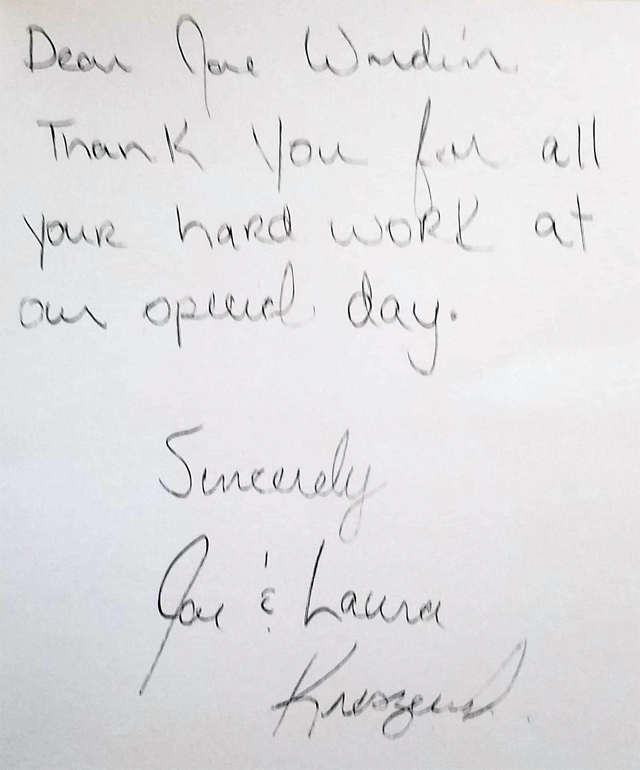 Dear Joe
Thank you for all
your hard work at
our special day.
Sincerely
Joe & Laura